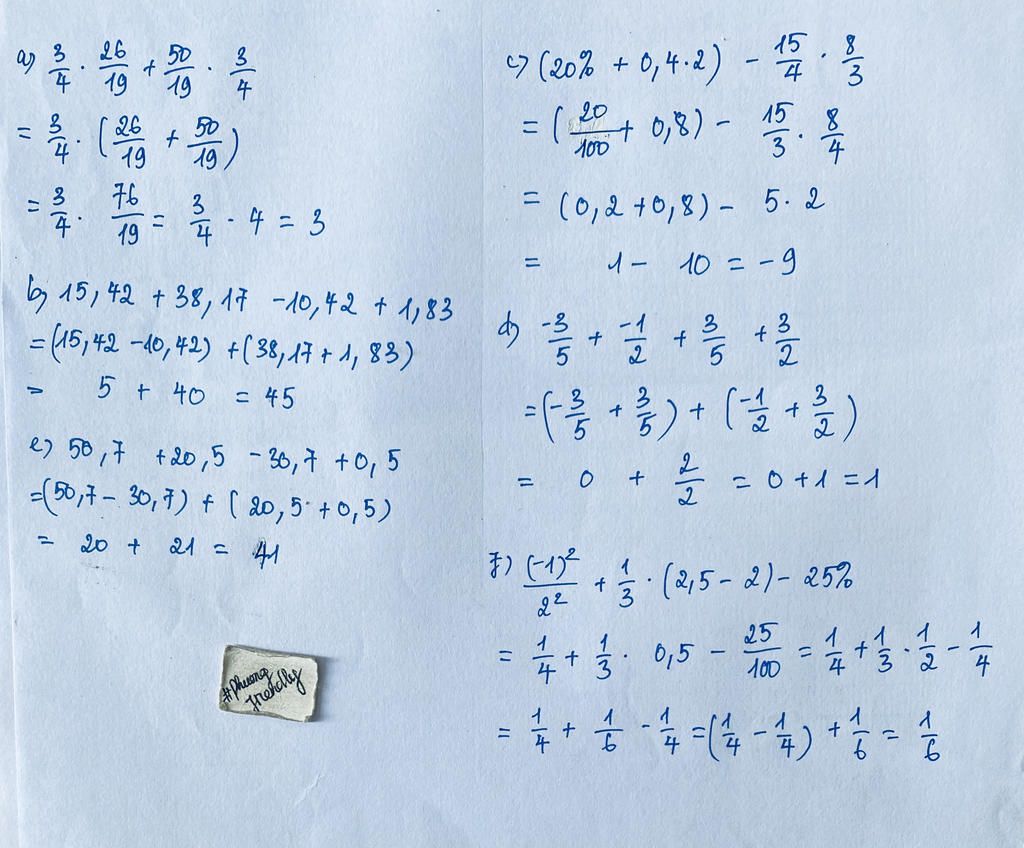 a) 3/4 . 26/19 + 50/19 . 3/4
= 3/4 . (26/19 + 50/19)
= 3/4 . 76/19 = 3/4 . 4 = 3
b) 15,42 + 38,17 - 10,42 + 1,83
= (15,42 - 10,42) + (38,17 + 1,83)
= 5 + 40 = 45
e) 50,7 + 20,5 - 30,7 + 0,5
= (50,7 - 30,7) + (20,5 + 0,5)
= 20 + 21 = 41
#Phuong
friendly
c) (20% + 0,4.2) - 15/4 . 8/3
= (20/100 + 0,8) - 15/3 . 8/4
= (0,2 + 0,8) - 5.2
= 1 - 10 = -9
d) -3/5 + -1/2 + 3/5 + 3/2
= (-3/5 + 3/5) + (-1/2 + 3/2)
= 0 + 2/2 = 0 + 1 = 1
f) (-1)²/2² + 1/3 . (2,5 - 2) - 25%
= 1/4 + 1/3 . 0,5 - 25/100 = 1/4 + 1/3 . 1/2 - 1/4
= 1/4 + 1/6 - 1/4 = (1/4 - 1/4) + 1/6 = 1/6